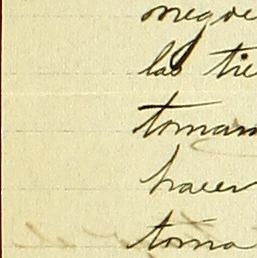 las tie
toman
hacer
toma